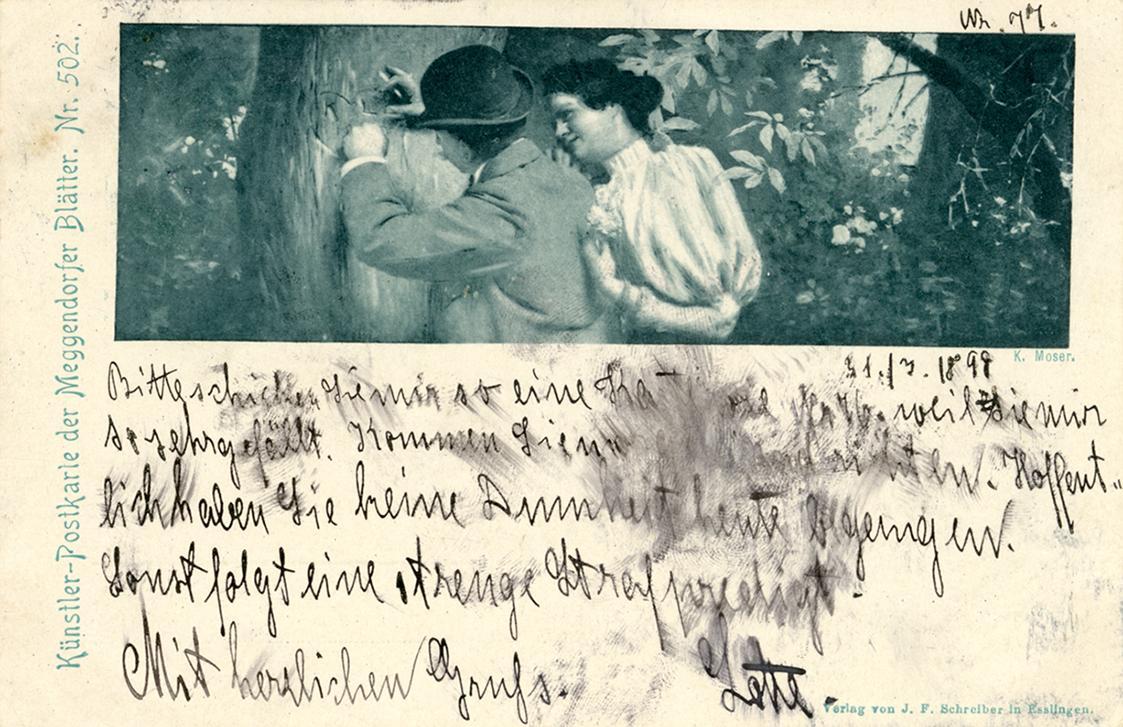 Nr. 77.
Künstler-Postkarte der Meggendorfer Blätter. Nr. 502.
K. Moser.
31./3. 1898
Bitte schicken Sie mir so eine weil Sie mir
so sehr gefällt. Kommen Sie Hoffent-
lich haben Sie keine Dummheit heute begangen.
Sonst folgt eine strenge Strafpredigt.
Mit herzlichen Gruß.
Verlag von J. F. Schreiber in Esslingen.